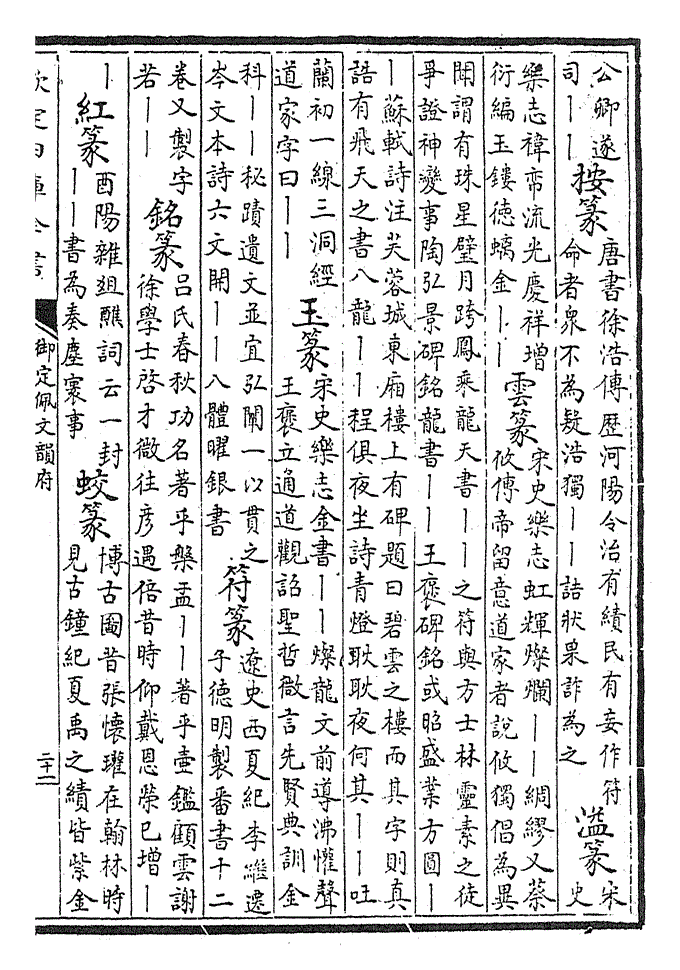 公卿遂
司｜｜
按篆
唐書徐浩傳歴河陽令治有績民有妄作符
命者衆不為疑浩獨｜｜詰狀果詐為之
溢篆
宋
史
樂志禕帟流光慶祥增
衍編玉鏤徳螭金｜｜
雲篆
宋史樂志虹輝燦爛｜｜綢繆又蔡
攸傳帝留意道家者說攸獨倡為異
聞謂有珠星璧月跨鳳乘龍天書｜｜之符與方士林靈素之徒
爭證神變事陶弘景碑銘龍書｜｜王褒碑銘或昭盛業方圓｜
｜蘇軾詩注芙蓉城東廂樓上有碑題曰碧雲之樓而其字則真
誥有飛天之書八龍｜｜程俱夜坐詩青燈耿耿夜何其｜｜吐
蘭初一線三洞經
道家字曰｜｜
王篆
宋史樂志金書｜｜燦龍文前導沸懽聲
王褒立通道觀詔聖哲微言先賢典訓金
科｜｜秘蹟遺文並宜弘闡一以貫之
岑文本詩六文開｜｜八體曜銀書
符篆
遼史西夏紀李繼遷
子徳明製番書十二
卷又製字
若｜｜
銘篆
吕氏春秋功名著乎槃盂｜｜著乎壺鑑顧雲謝
徐學士啓才微往彦遇倍昔時仰戴恩榮已增｜
｜
紅篆
酉陽雜俎醮詞云一封
｜｜書為奏塵寰事
蛟篆
博古圖昔張懷瓘在翰林時
見古鐘紀夏禹之績皆紫金
欽定四庫全書
御定佩文韻府
二十一